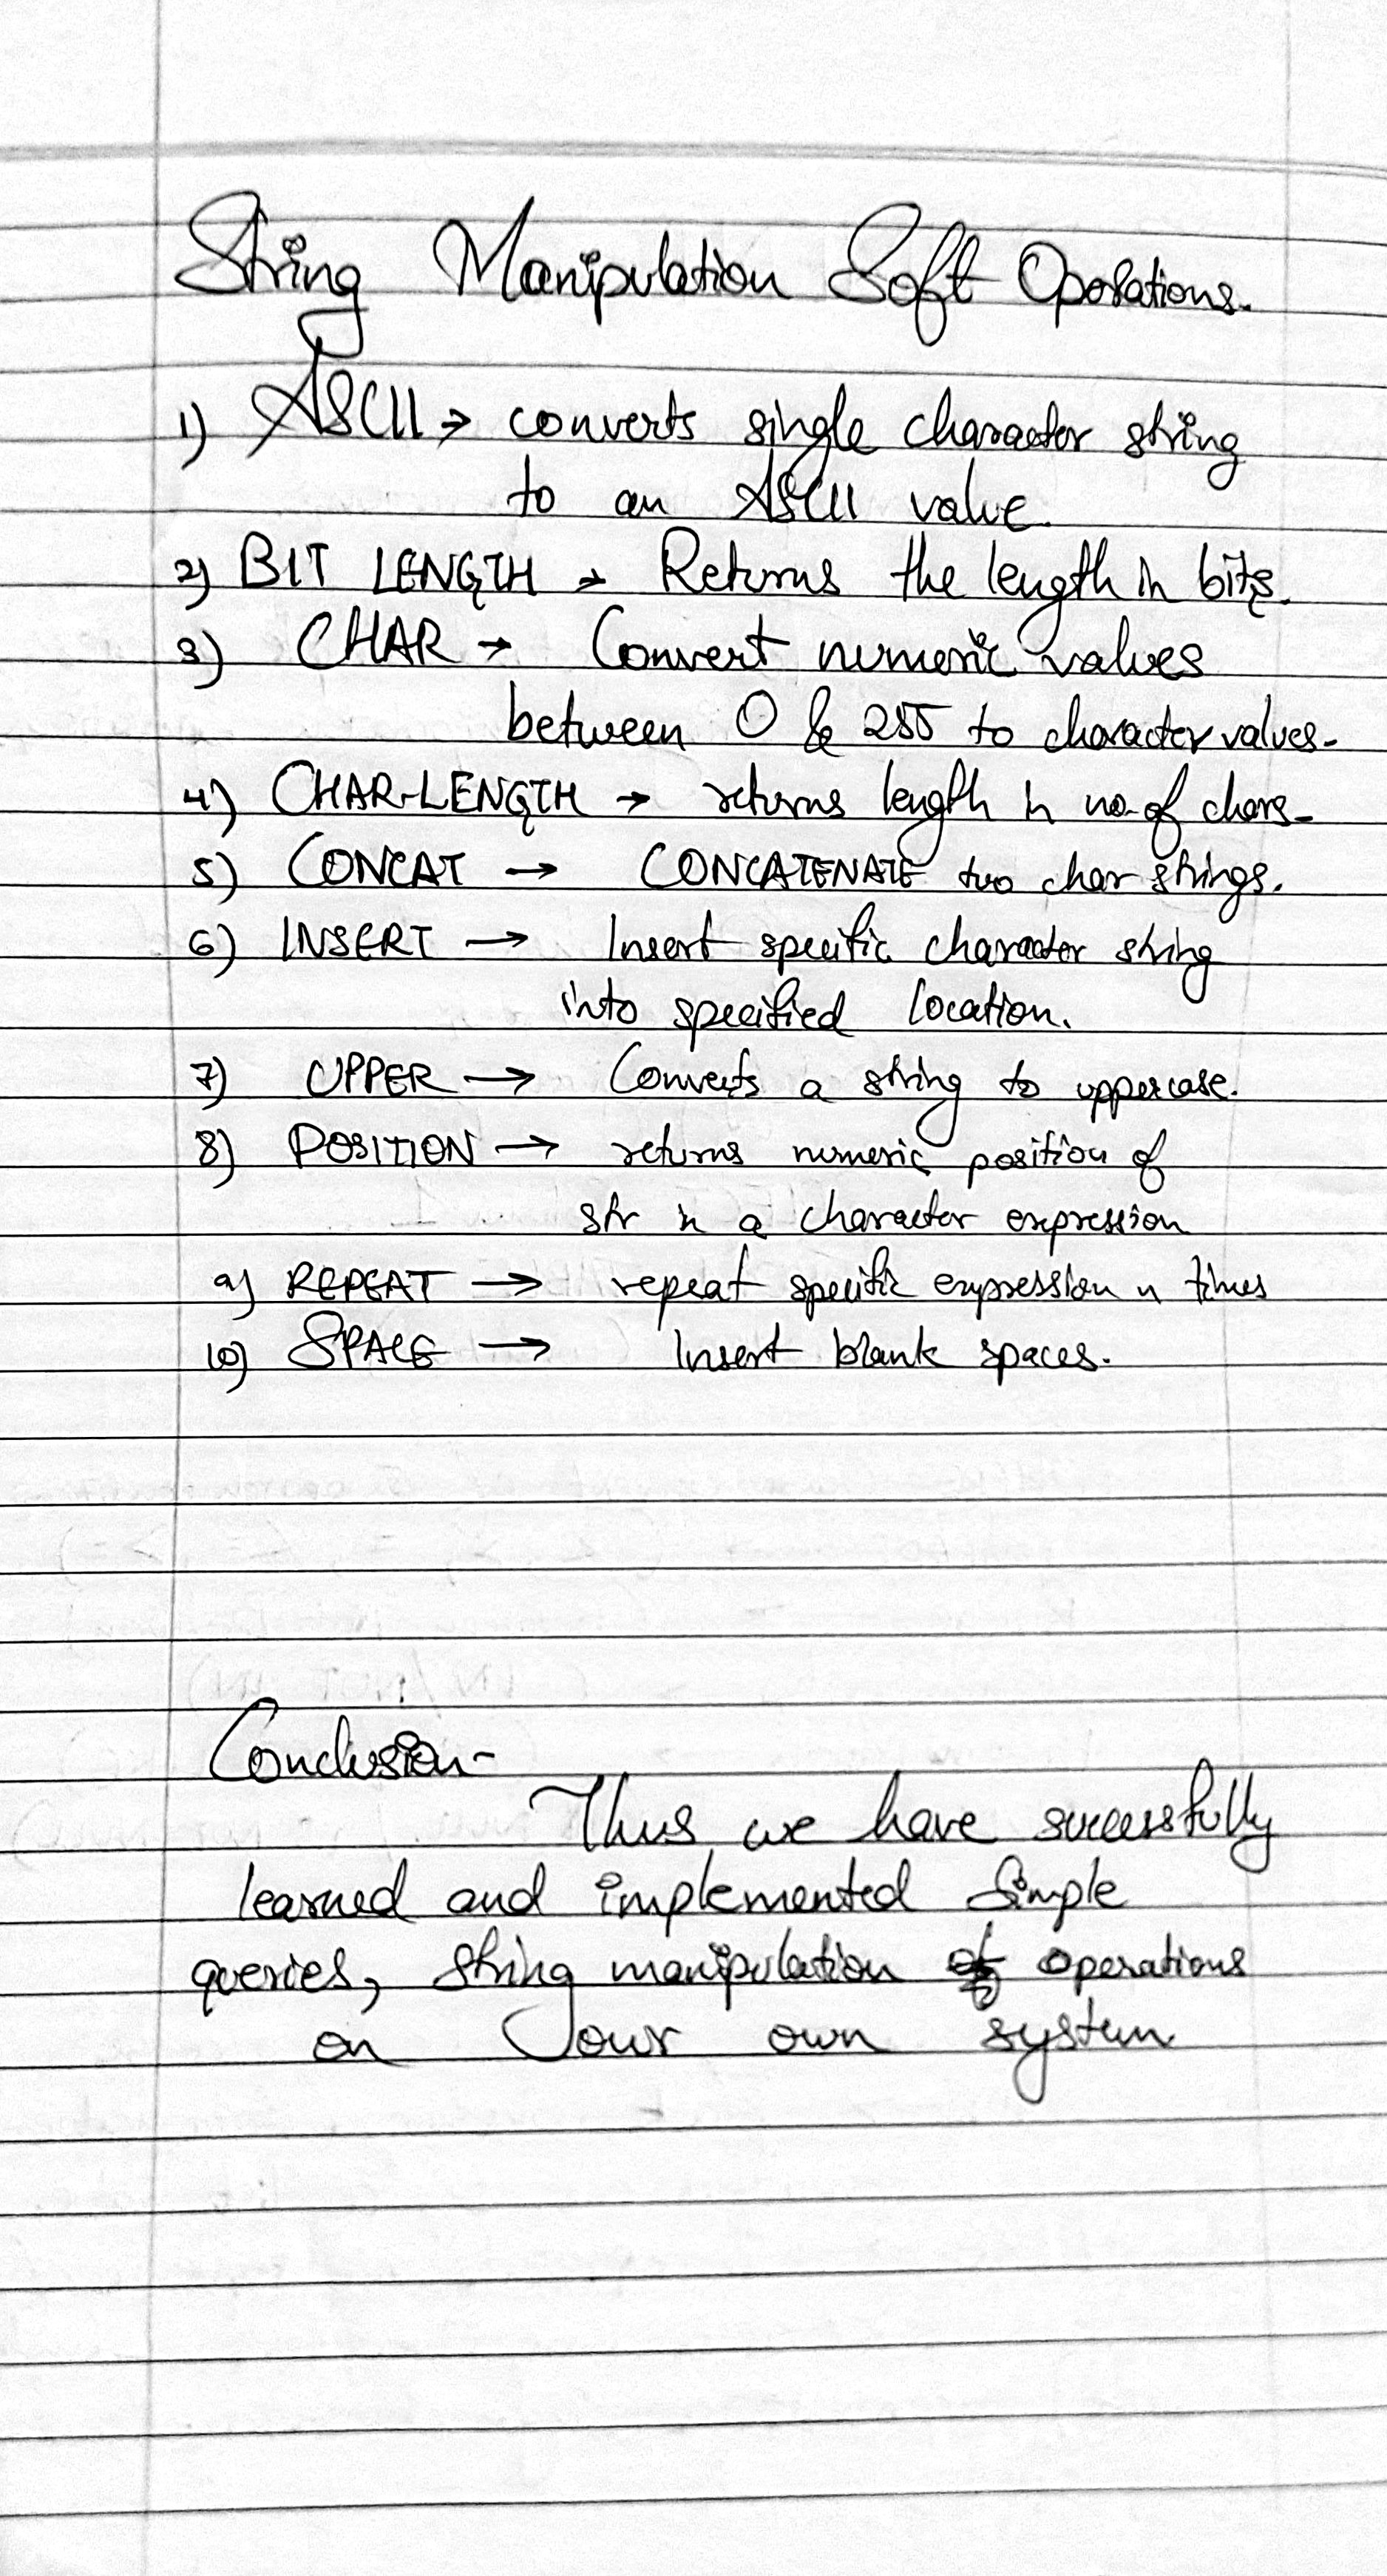 String Manipulation Soft Operations.
1) ASCII → converts single character string
to an ASCII value.
2) BIT LENGTH → Returns the length in bits.
3) CHAR → Convert numeric values
between 0 & 255 to character values.
4) CHAR-LENGTH → returns length in no. of chars.
5) CONCAT → CONCATENATE two char strings.
6) INSERT → Insert specific character string
into specified location.
7) UPPER → Converts a string to uppercase.
8) POSITION → returns numeric position of
str in a character expression
9) REPEAT → repeat specific expression n times
10) SPACE → Insert blank spaces.
Conclusion-
Thus we have successfully
learned and implemented Simple
queries, string manipulation operations
on our own system